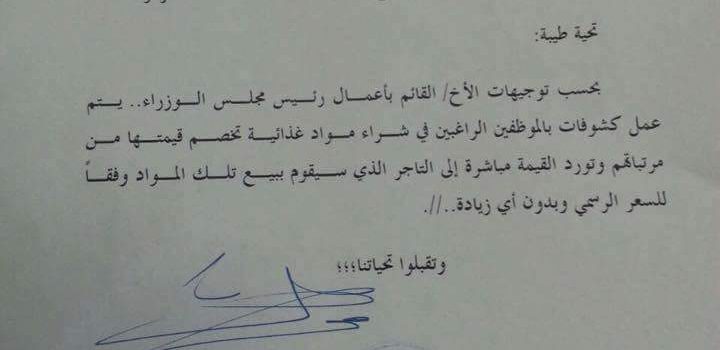 تحية طيبة:
بحسب توجيهات الأخ/ القائم بأعمال رئيس مجلس الوزراء.. يتم
عمل كشوفات بالموظفين الراغبين في شراء مواد غذائية تخصم قيمتها من
مرتباتهم وتورد القيمة مباشرة إلى التاجر الذي سيقوم ببيع تلك المواد وفقاً
للسعر الرسمي وبدون أي زيادة..//.
وتقبلوا تحياتنا؛؛؛